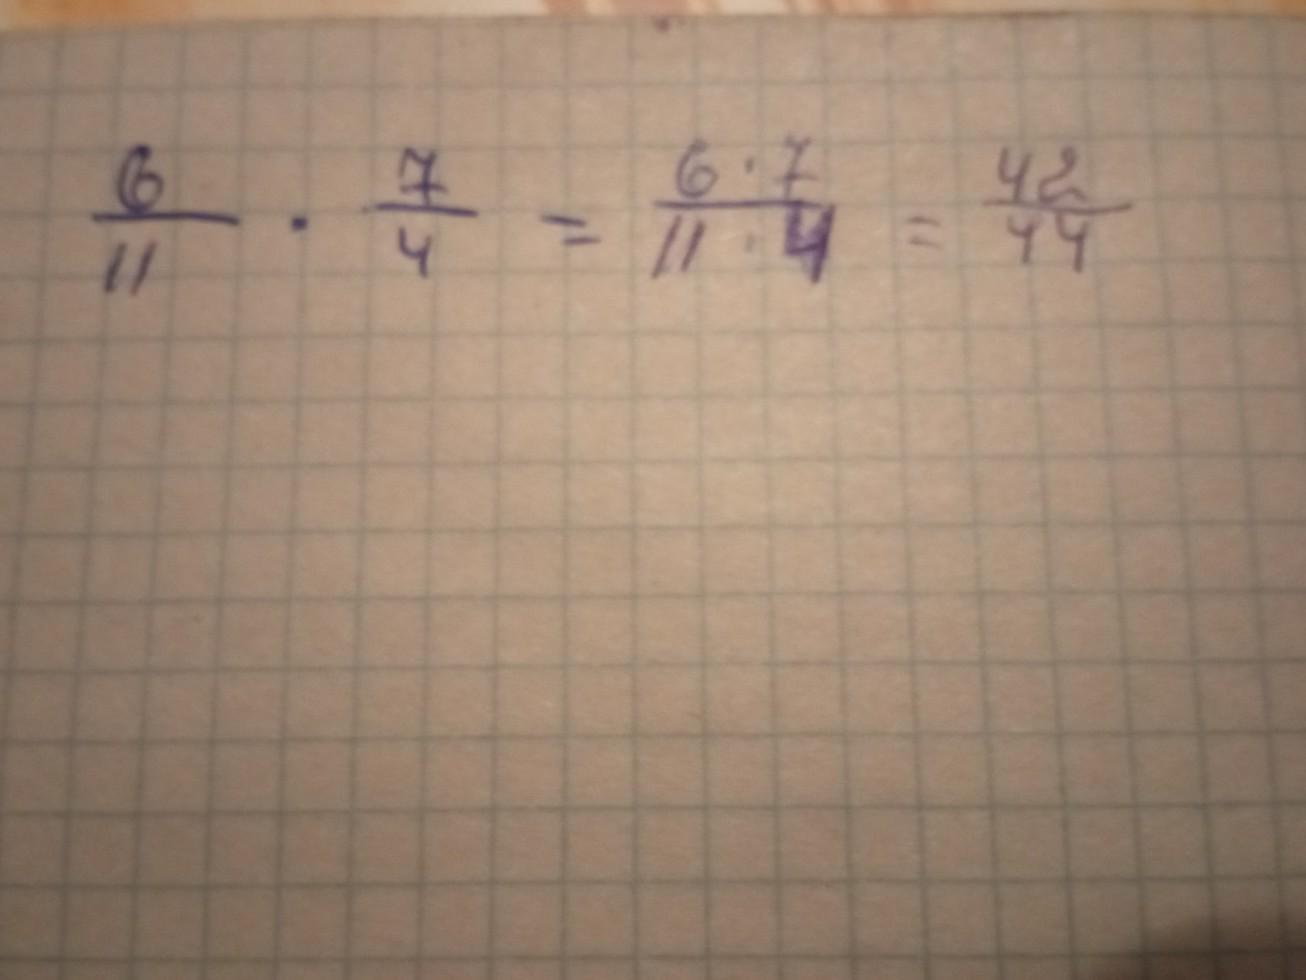 6/11 · 7/4 = 6·7/11·4 = 42/44